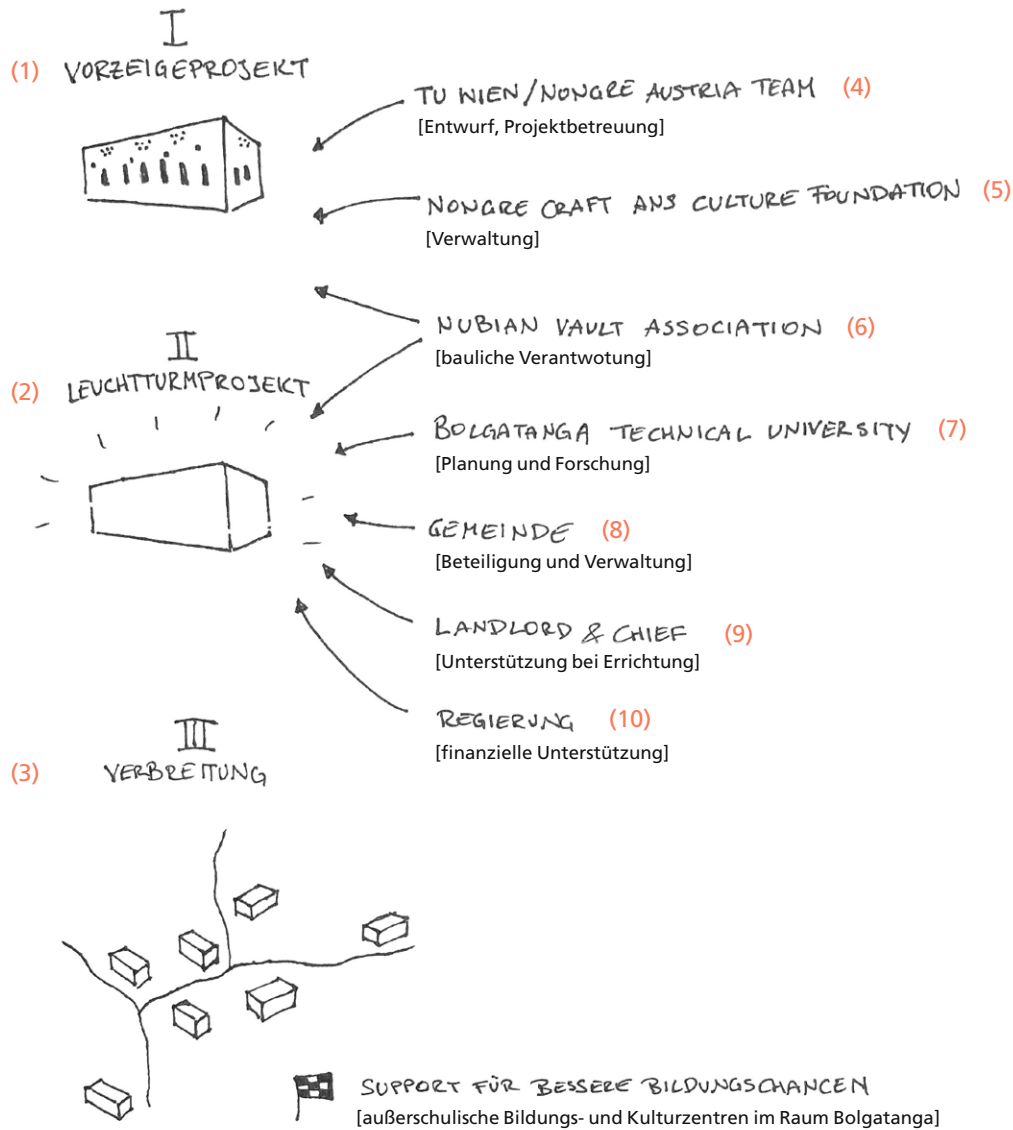 I
(1) VORZEIGEPROJEKT
TU WIEN/NONGRE AUSTRIA TEAM (4)
[Entwurf, Projektbetreuung]
NONGRE CRAFT ANS CULTURE FOUNDATION (5)
[Verwaltung]
NUBIAN VAULT ASSOCIATION (6)
[bauliche Verantwotung]
II
(2) LEUCHTTURMPROJEKT
BOLGATANGA TECHNICAL UNIVERSITY (7)
[Planung und Forschung]
GEMEINDE (8)
[Beteiligung und Verwaltung]
LANDLORD & CHIEF (9)
[Unterstützung bei Errichtung]
REGIERUNG (10)
[finanzielle Unterstützung]
III
(3) VERBREITUNG
SUPPORT FÜR BESSERE BILDUNGSCHANCEN
[außerschulische Bildungs- und Kulturzentren im Raum Bolgatanga]